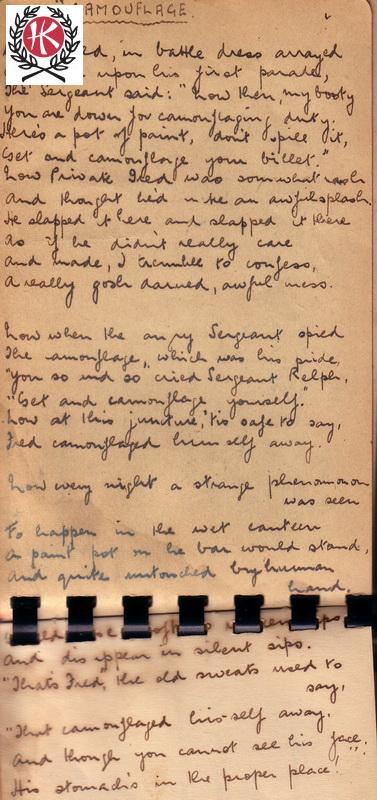 "CAMOUFLAGE.
HK
in battle dress arrayed
upon his first parade,
The Sergeant said: "Now then, my booty
You are down for camouflaging duty.
Here's a pot of paint, don't spill it,
Get and camouflage your billet."
Now Private Fred was somewhat rash
And thought he'd make an awful splash.
He slapped it here and slapped it there
As if he didn't really care
And made, I tremble to confess,
A really gosh darned, awful mess.
Now when the angry Sergeant spied
The camouflage, which was his pride,
"You so and so cried Sergeant Relph,
"Get and camouflage yourself."
Now at this juncture, 'tis safe to say,
Fred camouflaged himself away.
Now every night a strange phenomonon
was seen
To happen in the wet canteen
A paint pot on the bar would stand,
And quite untouched by human
hand.
And disappear in silent sips.
"That's Fred", the old sweats used to
say,
"That camouflaged his self away,
And though you cannot see his face,
His stomach's in the proper place!"